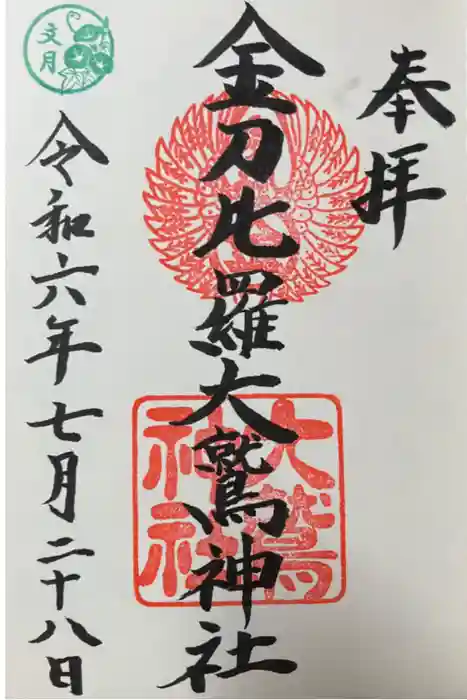 奉拝
金刀比羅大鷲神社
大鷲神社
令和六年七月二十八日
文月